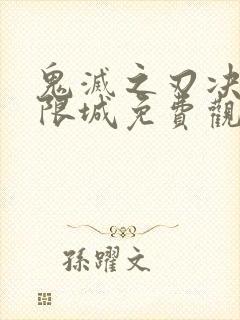 鬼滅之刃决
限城免費觀
孫躍文